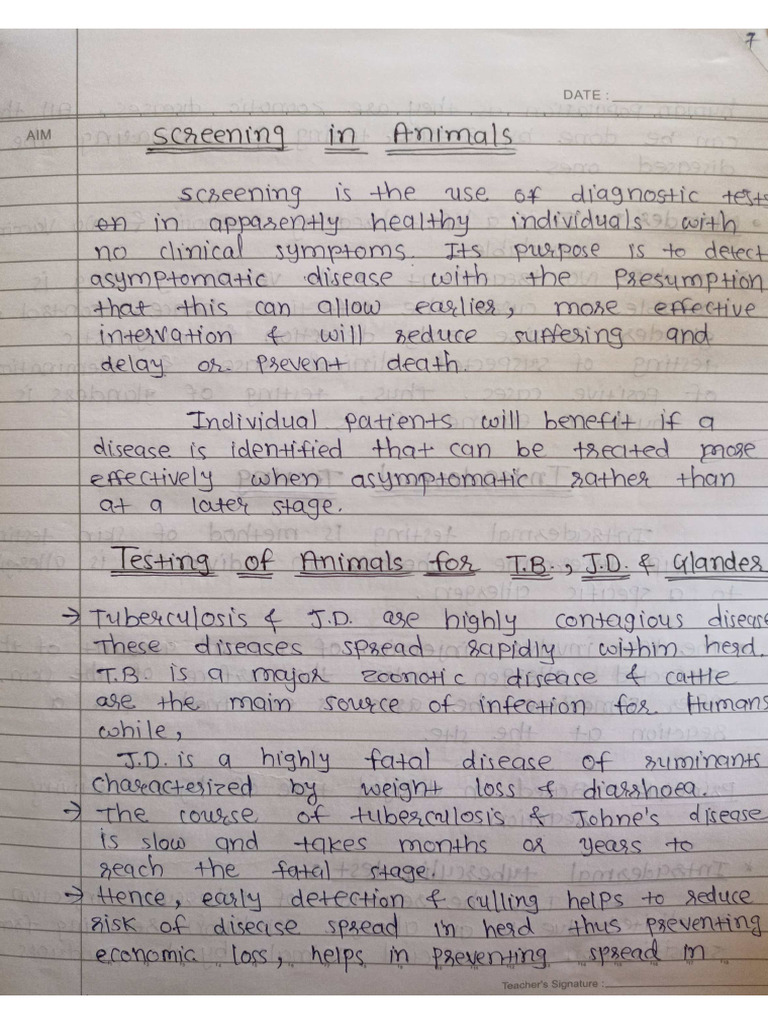 7
DATE :
AIM
Screening in Animals
Screening is the use of diagnostic tests
on in apparently healthy individuals with
no clinical symptoms. Its purpose is to detect
asymptomatic disease with the presumption
that this can allow earlier, more effective
intervation & will reduce suffering and
delay or prevent death.
Individual patients will benefit if a
disease is identified that can be treated more
effectively when asymptomatic rather than
at a later stage.
Testing of Animals for T.B., J.D. & Glander
→ Tuberculosis & J.D. are highly contagious disease
These diseases spread rapidly within herd.
T.B is a major zoonotic disease & cattle
are the main source of infection for Humans
while,
J.D. is a highly fatal disease of ruminants
characterized by weight loss & diarrhoea.
→ The course of tuberculosis & Johne's disease
is slow and takes months or years to
reach the fatal stage.
→ Hence, early detection & culling helps to reduce
risk of disease spread in herd thus preventing
economic loss, helps in preventing spread in
Teacher's Signature :